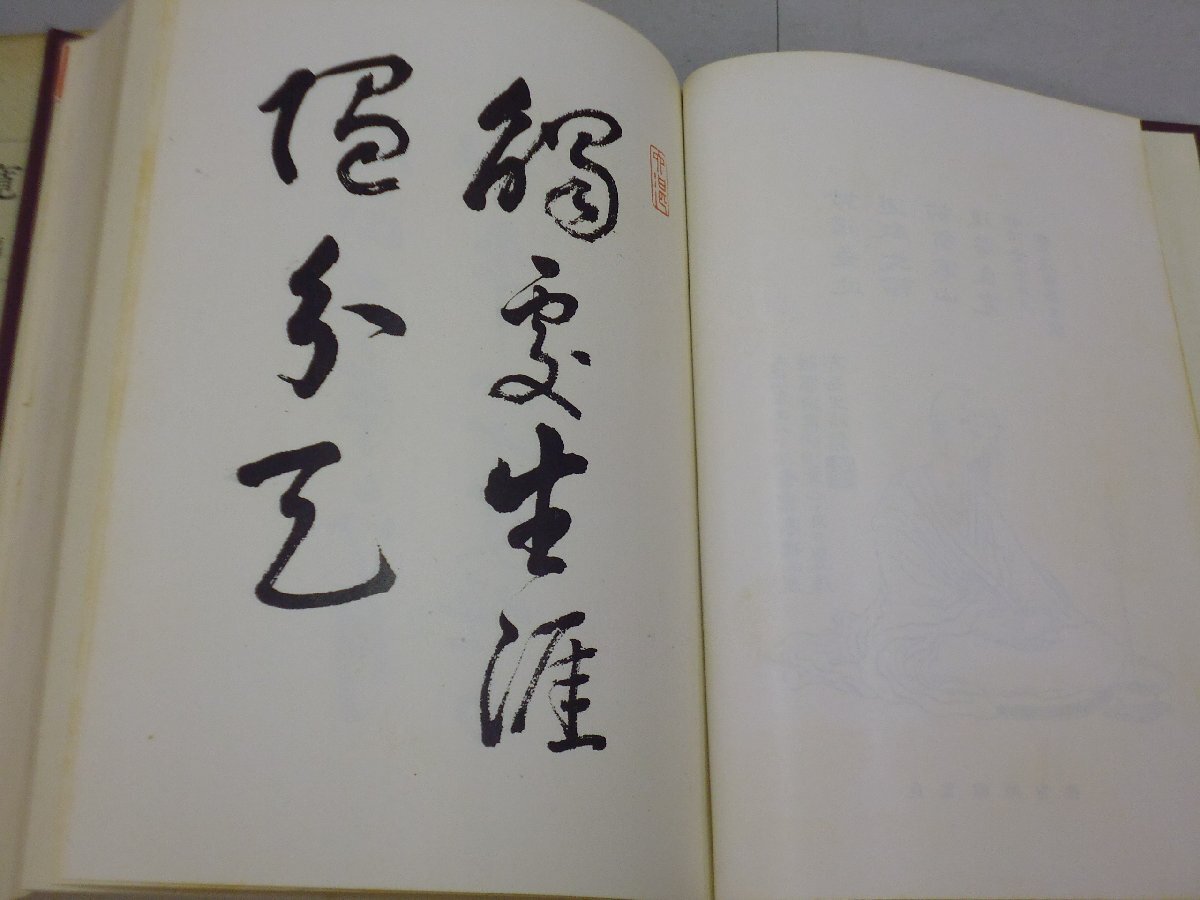 觸處生涯
隨分足